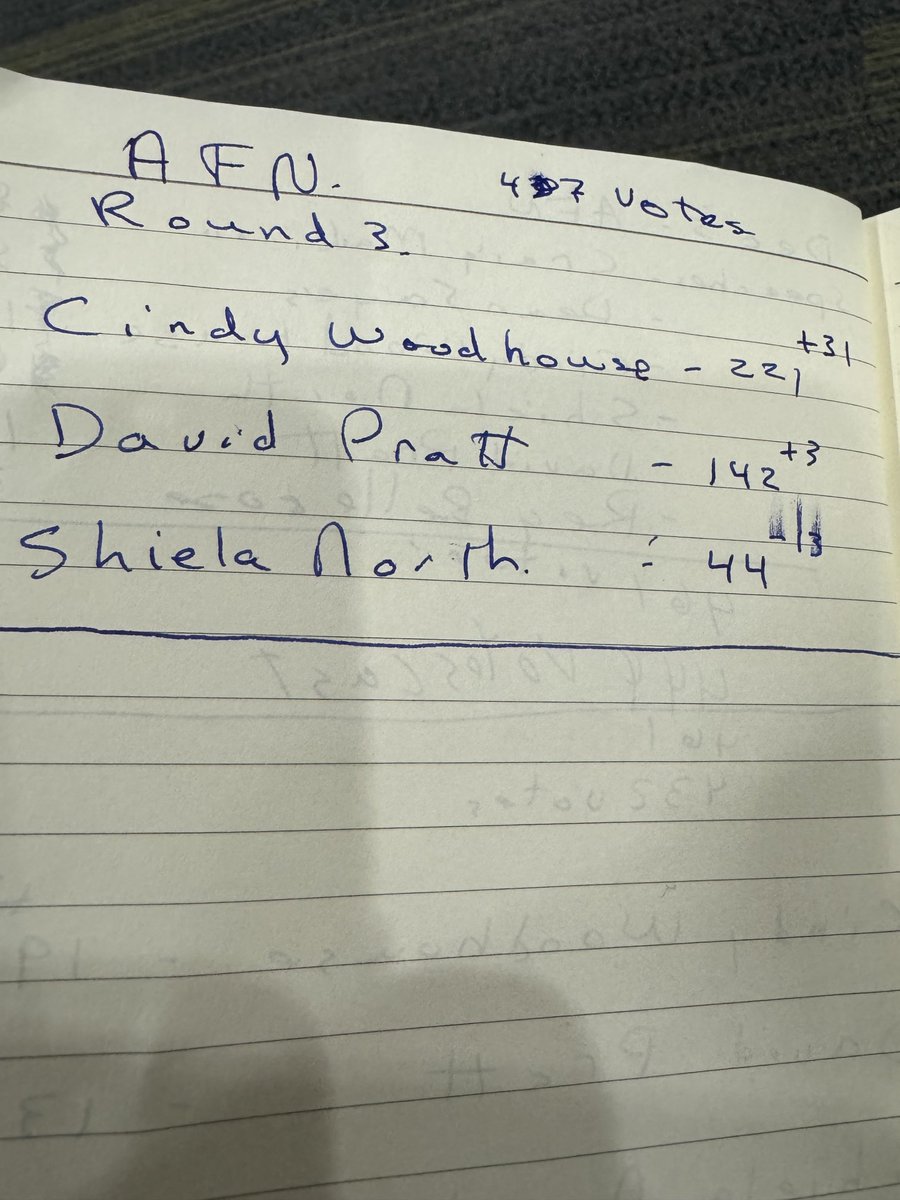 AFN.
votes
Round 3.
Cindy Woodhouse - 221 +31
David Pratt - 142 +3
Shiela North. - 44